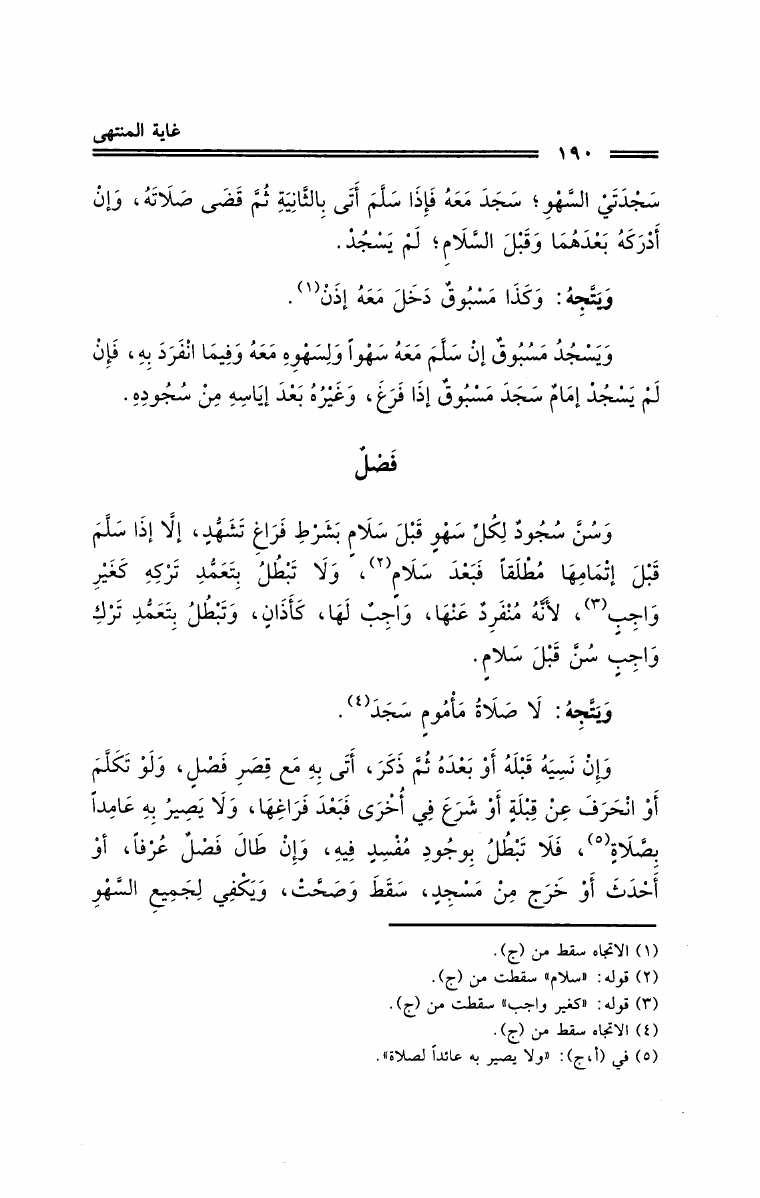 غاية المنتهى
١٩٠
سَجْدَتَيْ السَّهْوِ؛ سَجَدَ مَعَهُ فَإِذَا سَلَّمَ أَتَى بِالثَّانِيَةِ ثُمَّ قَضَى صَلَاتَهُ، وَإنْ
أَدْرَكَهُ بَعْدَهُمَا وَقَبْلَ السَّلَامِ؛ لَمْ يَسْجُدْ.
وَيَتَّجِهُ: وَكَذَا مَسْبُوقٌ دَخَلَ مَعَهُ إذَنْ(١).
وَيَسْجُدُ مَسْبُوقٌ إنْ سَلَّمَ مَعَهُ سَهْواً وَلِسَهْوِهِ مَعَهُ وَفِيمَا انْفَرَدَ بِهِ، فَإِنْ
لَمْ يَسْجُدْ إمَامٌ سَجَدَ مَسْبُوقٌ إذَا فَرَغَ، وَغَيْرُهُ بَعْدَ إيَاسِهِ مِنْ سُجُودِهِ.
فَصْلٌ
وَسُنَّ سُجُودٌ لِكُلِّ سَهْوٍ قَبْلَ سَلَامٍ بَشَرْطِ فَرَاغِ تَشَهُّدٍ، إلَّا إذَا سَلَّمَ
قَبْلَ إتْمَامِهَا مُطْلَقاً فَبَعْدَ سَلَامٍ(٢)، وَلَا تَبْطُلُ بِتَعَمُّدِ تَرْكِهِ كَغَيْرِ
وَاجِبٍ(٣)، لأَنَّهُ مُنْفَرِدٌ عَنْهَا، وَاجِبٌ لَهَا، كَأَذَانٍ، وَتَبْطُلُ بِتَعَمُّدِ تَرْكِ
وَاجِبٍ سُنَّ قَبْلَ سَلامٍ.
وَيَتَّجِهُ: لَا صَلَاةُ مَأْمُومٍ سَجَدَ(٤).
وَإِنْ نَسِيَهُ قَبْلَهُ أَوْ بَعْدَهُ ثُمَّ ذَكَرَ، أَتَى بِهِ مَع قِصَرِ فَصْلٍ، وَلَوْ تَكَلَّمَ
أَوْ انْحَرَفَ عِنْ قِبْلَةٍ أَوْ شَرَعَ فِي أُخْرَى فَبَعْدَ فَرَاغِهَا، وَلَا يَصِيرُ بِهِ عَامِداً
بِصَّلَاةٍ(٥)، فَلَا تَبْطُلُ بِوجُودِ مُفْسِدٍ فِيهِ، وَإنْ طَالَ فَصْلٌ عُرْفاً، أوْ
أَحْدَثَ أَوْ خَرَج مِنْ مَسْجِدٍ، سَقَطَ وَصَحَّتْ، وَيَكْفِي لِجَمِيعِ السَّهْوِ
(١) الاتجاه سقط من (ج).
(٢) قوله: «سلام» سقطت من (ج).
(٣) قوله: «كغير واجب» سقطت من (ج).
(٤) الاتجاه سقط من (ج).
(٥) في (أ،ج): «ولا يصير به عائداً لصلاة».